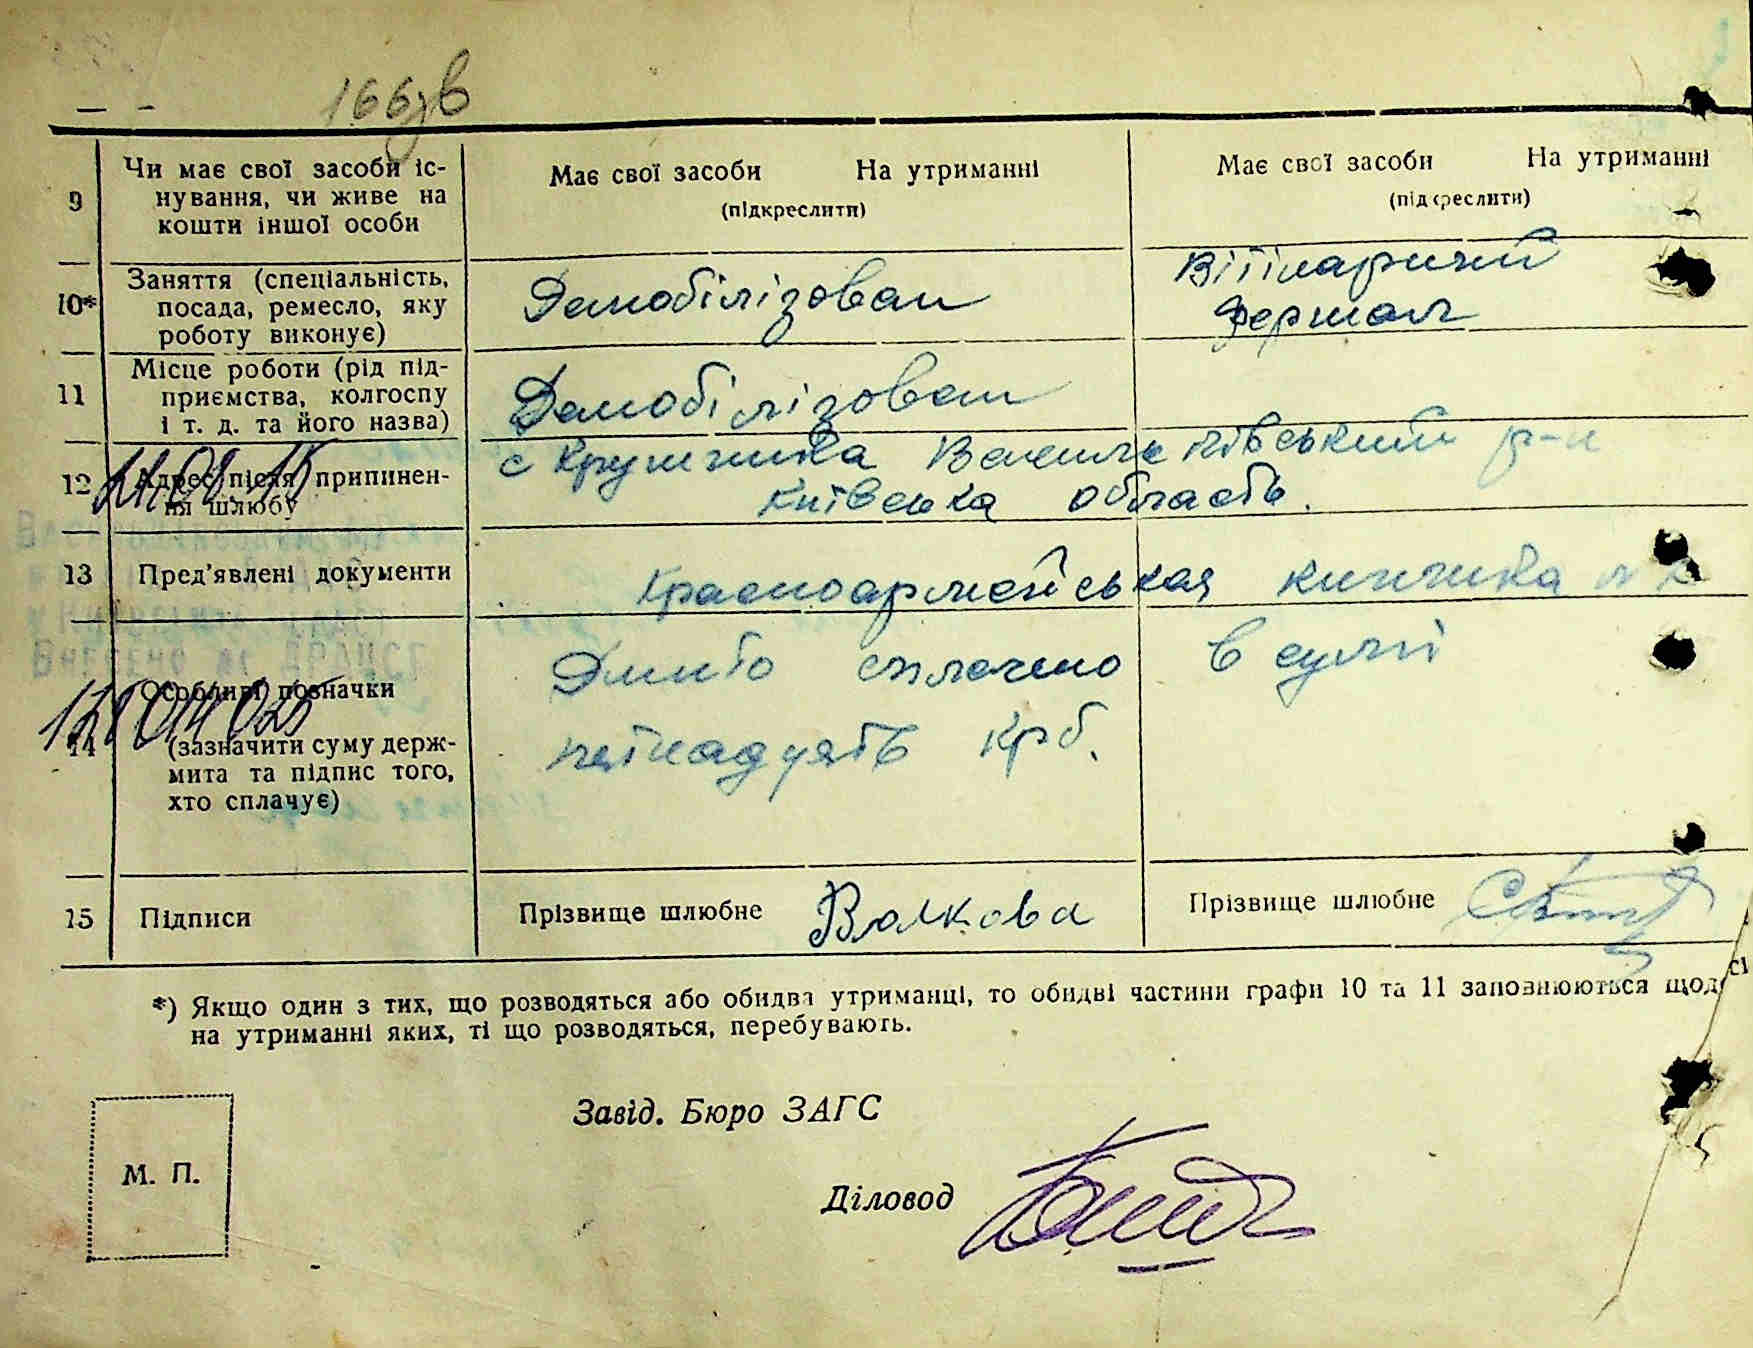 166зв
9
Чи має свої засоби іс-
нування, чи живе на
кошти іншої особи
Має свої засоби На утриманні
(підкреслити)
Має свої засоби На утриманні
(підкреслити)
10*
Заняття (спеціальність,
посада, ремесло, яку
роботу виконує)
Демобілізован
Вітінаричий
Фершал
11
Місце роботи (рід під-
приємства, колгоспу
і т. д. та його назва)
Демобілізован
12
Адрес після припинен-
ня шлюбу
с Крушинка Васильківський р-н
Київська область.
13
Пред'явлені документи
Красноармейськая книжка
14
Особливі позначки
(зазначити суму держ-
мита та підпис того,
хто сплачує)
Внесено до ДРАЦСГ
12 00141025
Мито сплачено в сумі
пятнадцять крб.
15
Підписи
Прізвище шлюбне Волкова
Прізвище шлюбне
*) Якщо один з тих, що розводяться або обидва утриманці, то обидві частини графи 10 та 11 заповнюються щодо
на утриманні яких, ті що розводяться, перебувають.
Завід. Бюро ЗАГС
М. П.
Діловод